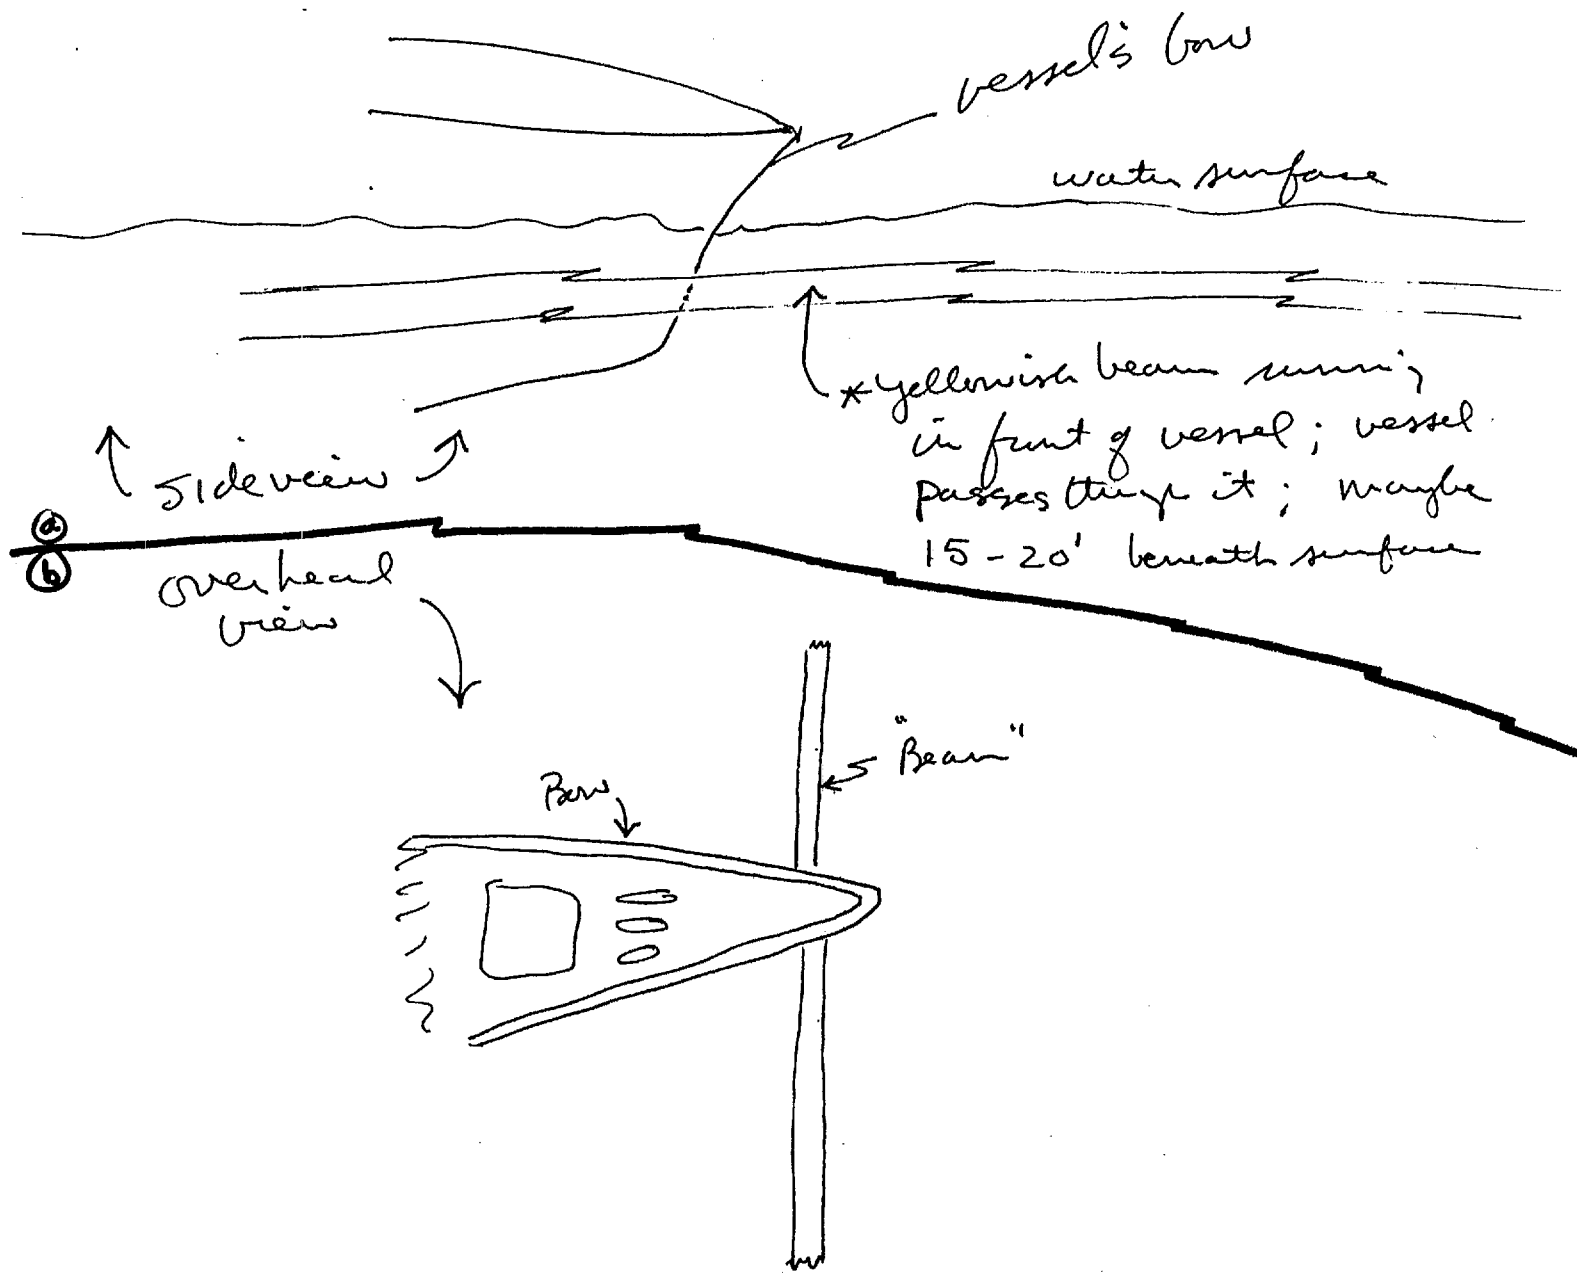 vessel's bow
water surface
* yellowish beam running
in front of vessel; vessel
passes through it; maybe
15-20' beneath surface
side view
a
b
overhead
view
"Beam"
Bow